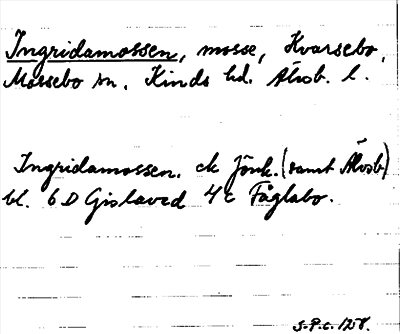 Ingridamossen, mosse, Kvarsebo,
Mossebo sn, Kinds hd. Älvsb. l.
Ingridamossen. ek Jönk. (samt Älvsb)
bl. 6 D Gislaved 4 c Fåglabo.
S.P.C. 1258.